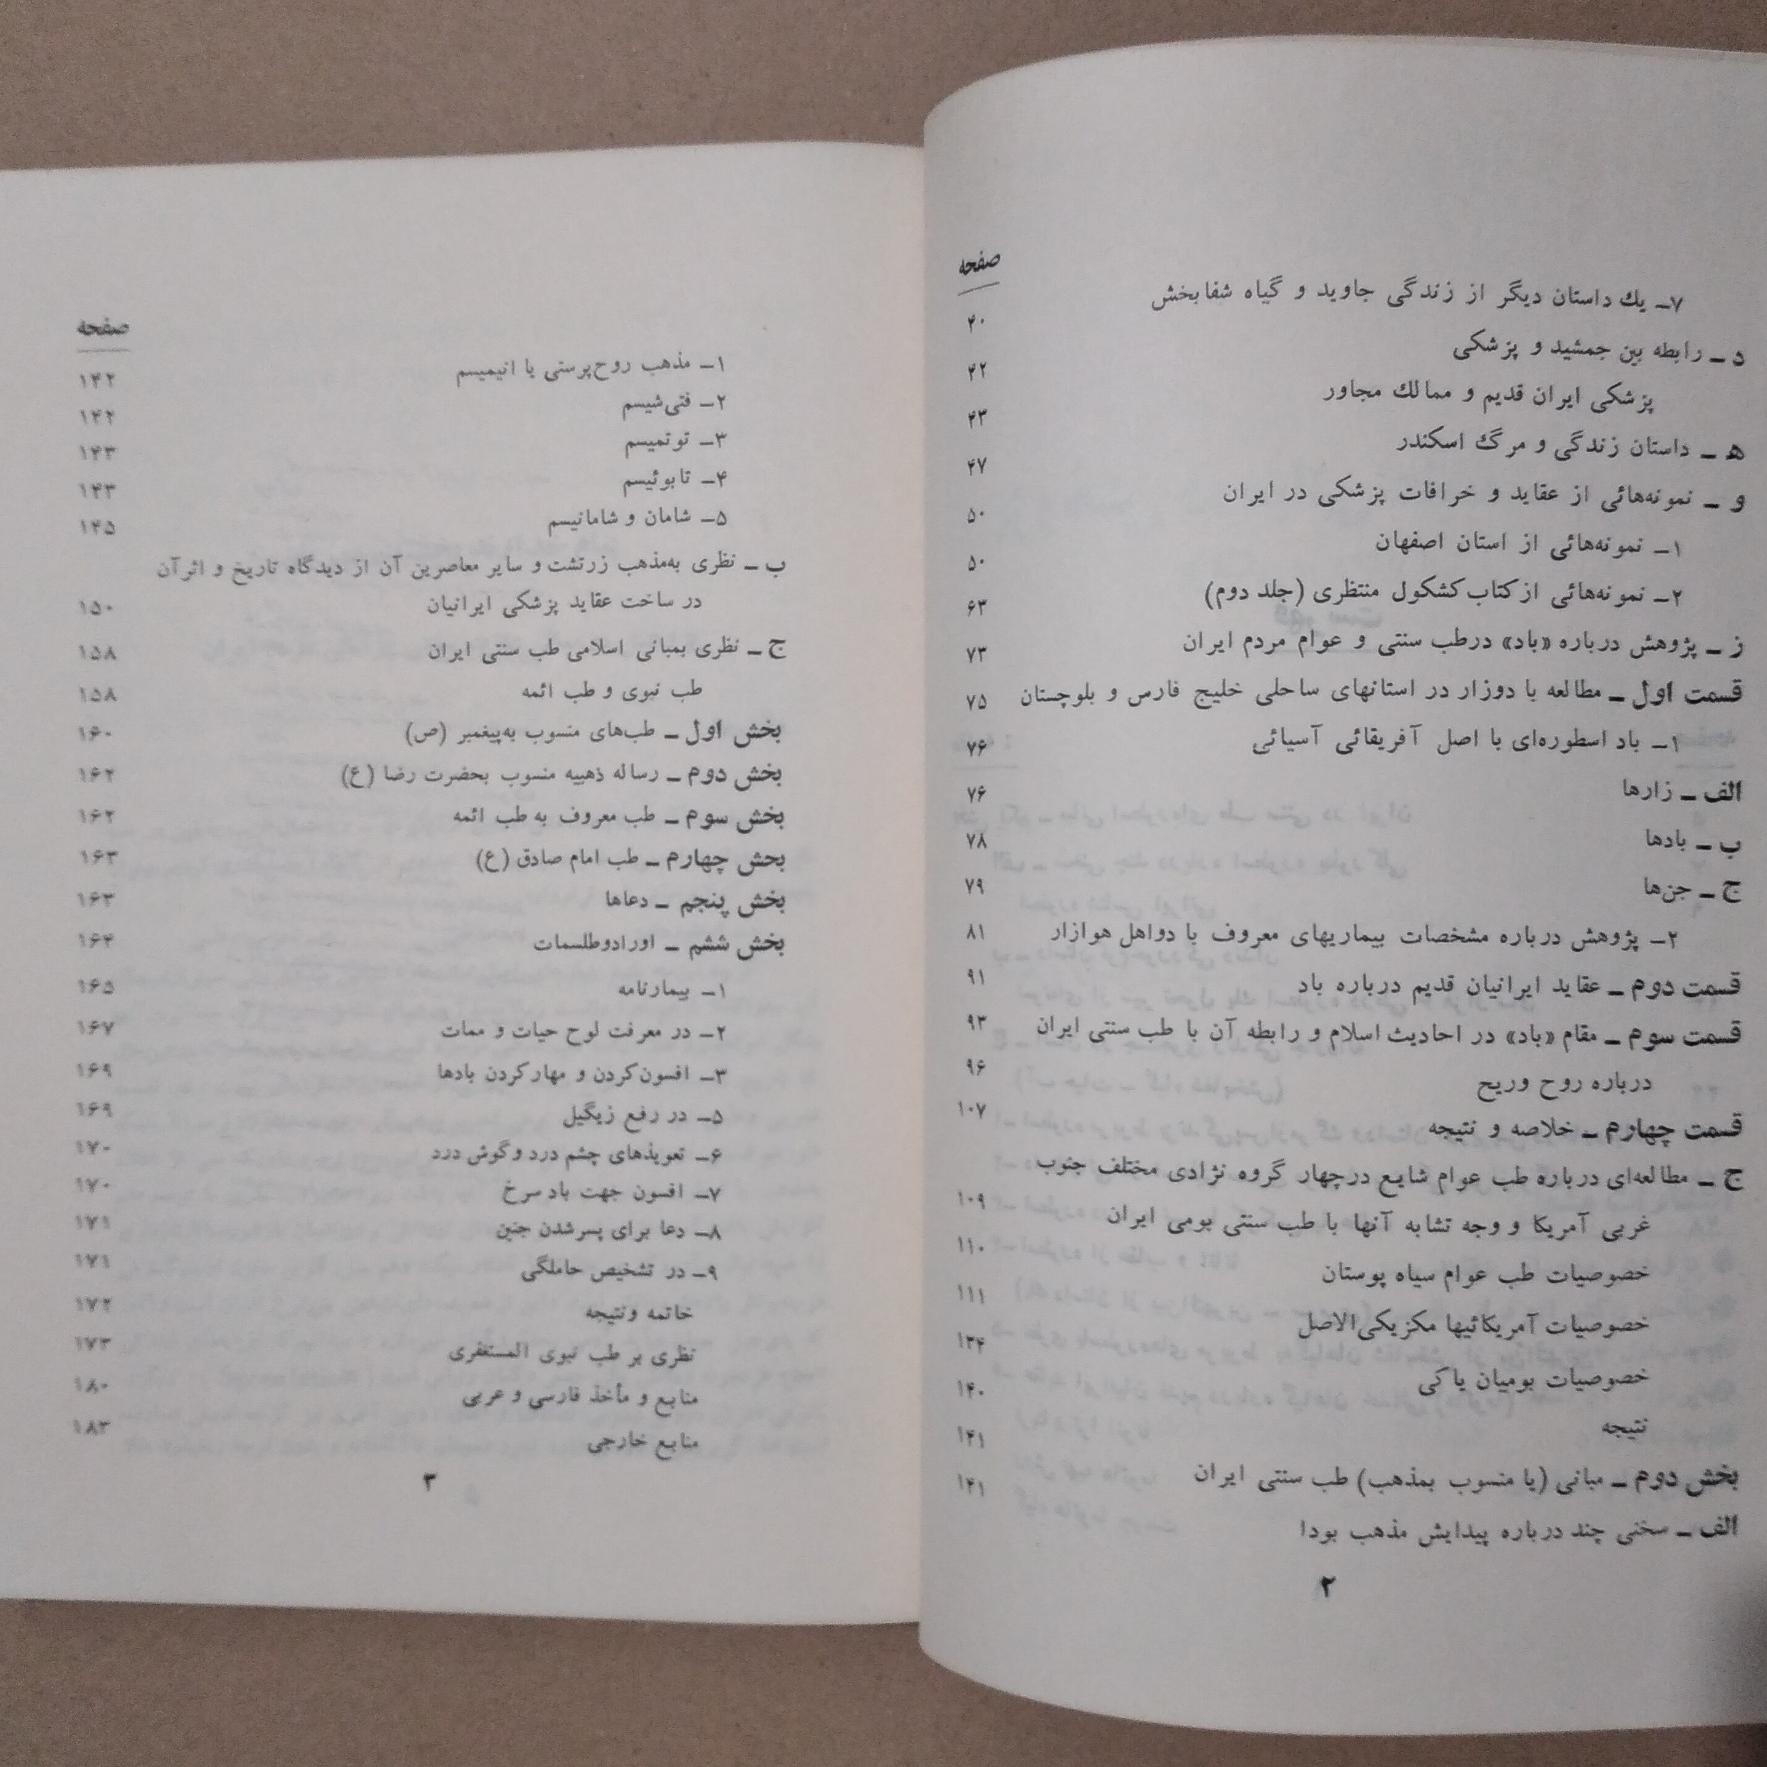 صفحه
۷ـ یك داستان دیگر از زندگی جاوید و گیاه شفابخش ۴۰
د ـ رابطه بین جمشید و پزشکی ۴۲
پزشکی ایران قدیم و ممالك مجاور ۴۳
ه ـ داستان زندگی و مرگ اسکندر ۴۷
و ـ نمونه‌هائی از عقاید و خرافات پزشکی در ایران ۵۰
۱ـ نمونه‌هائی از استان اصفهان ۵۰
۲ـ نمونه‌هائی از کتاب کشکول منتظری (جلد دوم) ۶۳
ز ـ پژوهش درباره «باد» درطب سنتی و عوام مردم ایران ۷۳
قسمت اول ـ مطالعه با دوزار در استانهای ساحلی خلیج فارس و بلوچستان ۷۵
۱ـ باد اسطوره‌ای با اصل آفریقائی آسیائی ۷۶
الف ـ زارها ۷۶
ب ـ بادها ۷۸
ج ـ جن‌ها ۷۹
۲ـ پژوهش درباره مشخصات بیماریهای معروف با دواهل هوازار ۸۱
قسمت دوم ـ عقاید ایرانیان قدیم درباره باد ۹۱
قسمت سوم ـ مقام «باد» در احادیث اسلام و رابطه آن با طب سنتی ایران ۹۳
درباره روح وریح ۹۶
قسمت چهارم ـ خلاصه و نتیجه ۱۰۷
ج ـ مطالعه‌ای درباره طب عوام شایع درچهار گروه نژادی مختلف جنوب
غربی آمریکا و وجه تشابه آنها با طب سنتی بومی ایران ۱۰۹
خصوصیات طب عوام سیاه پوستان ۱۱۰
خصوصیات آمریکائیها مکزیکی‌الاصل ۱۱۱
خصوصیات بومیان یاکی ۱۳۴
نتیجه ۱۴۰
بخش دوم ـ مبانی (یا منسوب بمذهب) طب سنتی ایران ۱۴۱
الف ـ سخنی چند درباره پیدایش مذهب بودا ۱۴۱
۲
صفحه
۱ـ مذهب روح‌پرستی یا انیمیسم ۱۴۲
۲ـ فتی‌شیسم ۱۴۲
۳ـ توتمیسم ۱۴۳
۴ـ تابوئیسم ۱۴۳
۵ـ شامان و شامانیسم ۱۴۵
ب ـ نظری به‌مذهب زرتشت و سایر معاصرین آن از دیدگاه تاریخ و اثرآن
در ساخت عقاید پزشکی ایرانیان ۱۵۰
ج ـ نظری بمبانی اسلامی طب سنتی ایران ۱۵۸
طب نبوی و طب ائمه ۱۵۸
بخش اول ـ طب‌های منسوب به‌پیغمبر (ص) ۱۶۰
بخش دوم ـ رساله ذهبیه منسوب بحضرت رضا (ع) ۱۶۲
بخش سوم ـ طب معروف به طب ائمه ۱۶۲
بخش چهارم ـ طب امام صادق (ع) ۱۶۳
بخش پنجم ـ دعاها ۱۶۳
بخش ششم ـ اورادوطلسمات ۱۶۴
۱ـ بیمارنامه ۱۶۵
۲ـ در معرفت لوح حیات و ممات ۱۶۷
۳ـ افسون‌کردن و مهارکردن بادها ۱۶۹
۵ـ در رفع زیگیل ۱۶۹
۶ـ تعویذهای چشم درد وگوش درد ۱۷۰
۷ـ افسون جهت باد سرخ ۱۷۰
۸ـ دعا برای پسرشدن جنین ۱۷۱
۹ـ در تشخیص حاملگی ۱۷۱
خاتمه ونتیجه ۱۷۲
نظری بر طب نبوی المستغفری ۱۷۳
منابع و مأخذ فارسی و عربی ۱۸۰
منابع خارجی ۱۸۳
۳